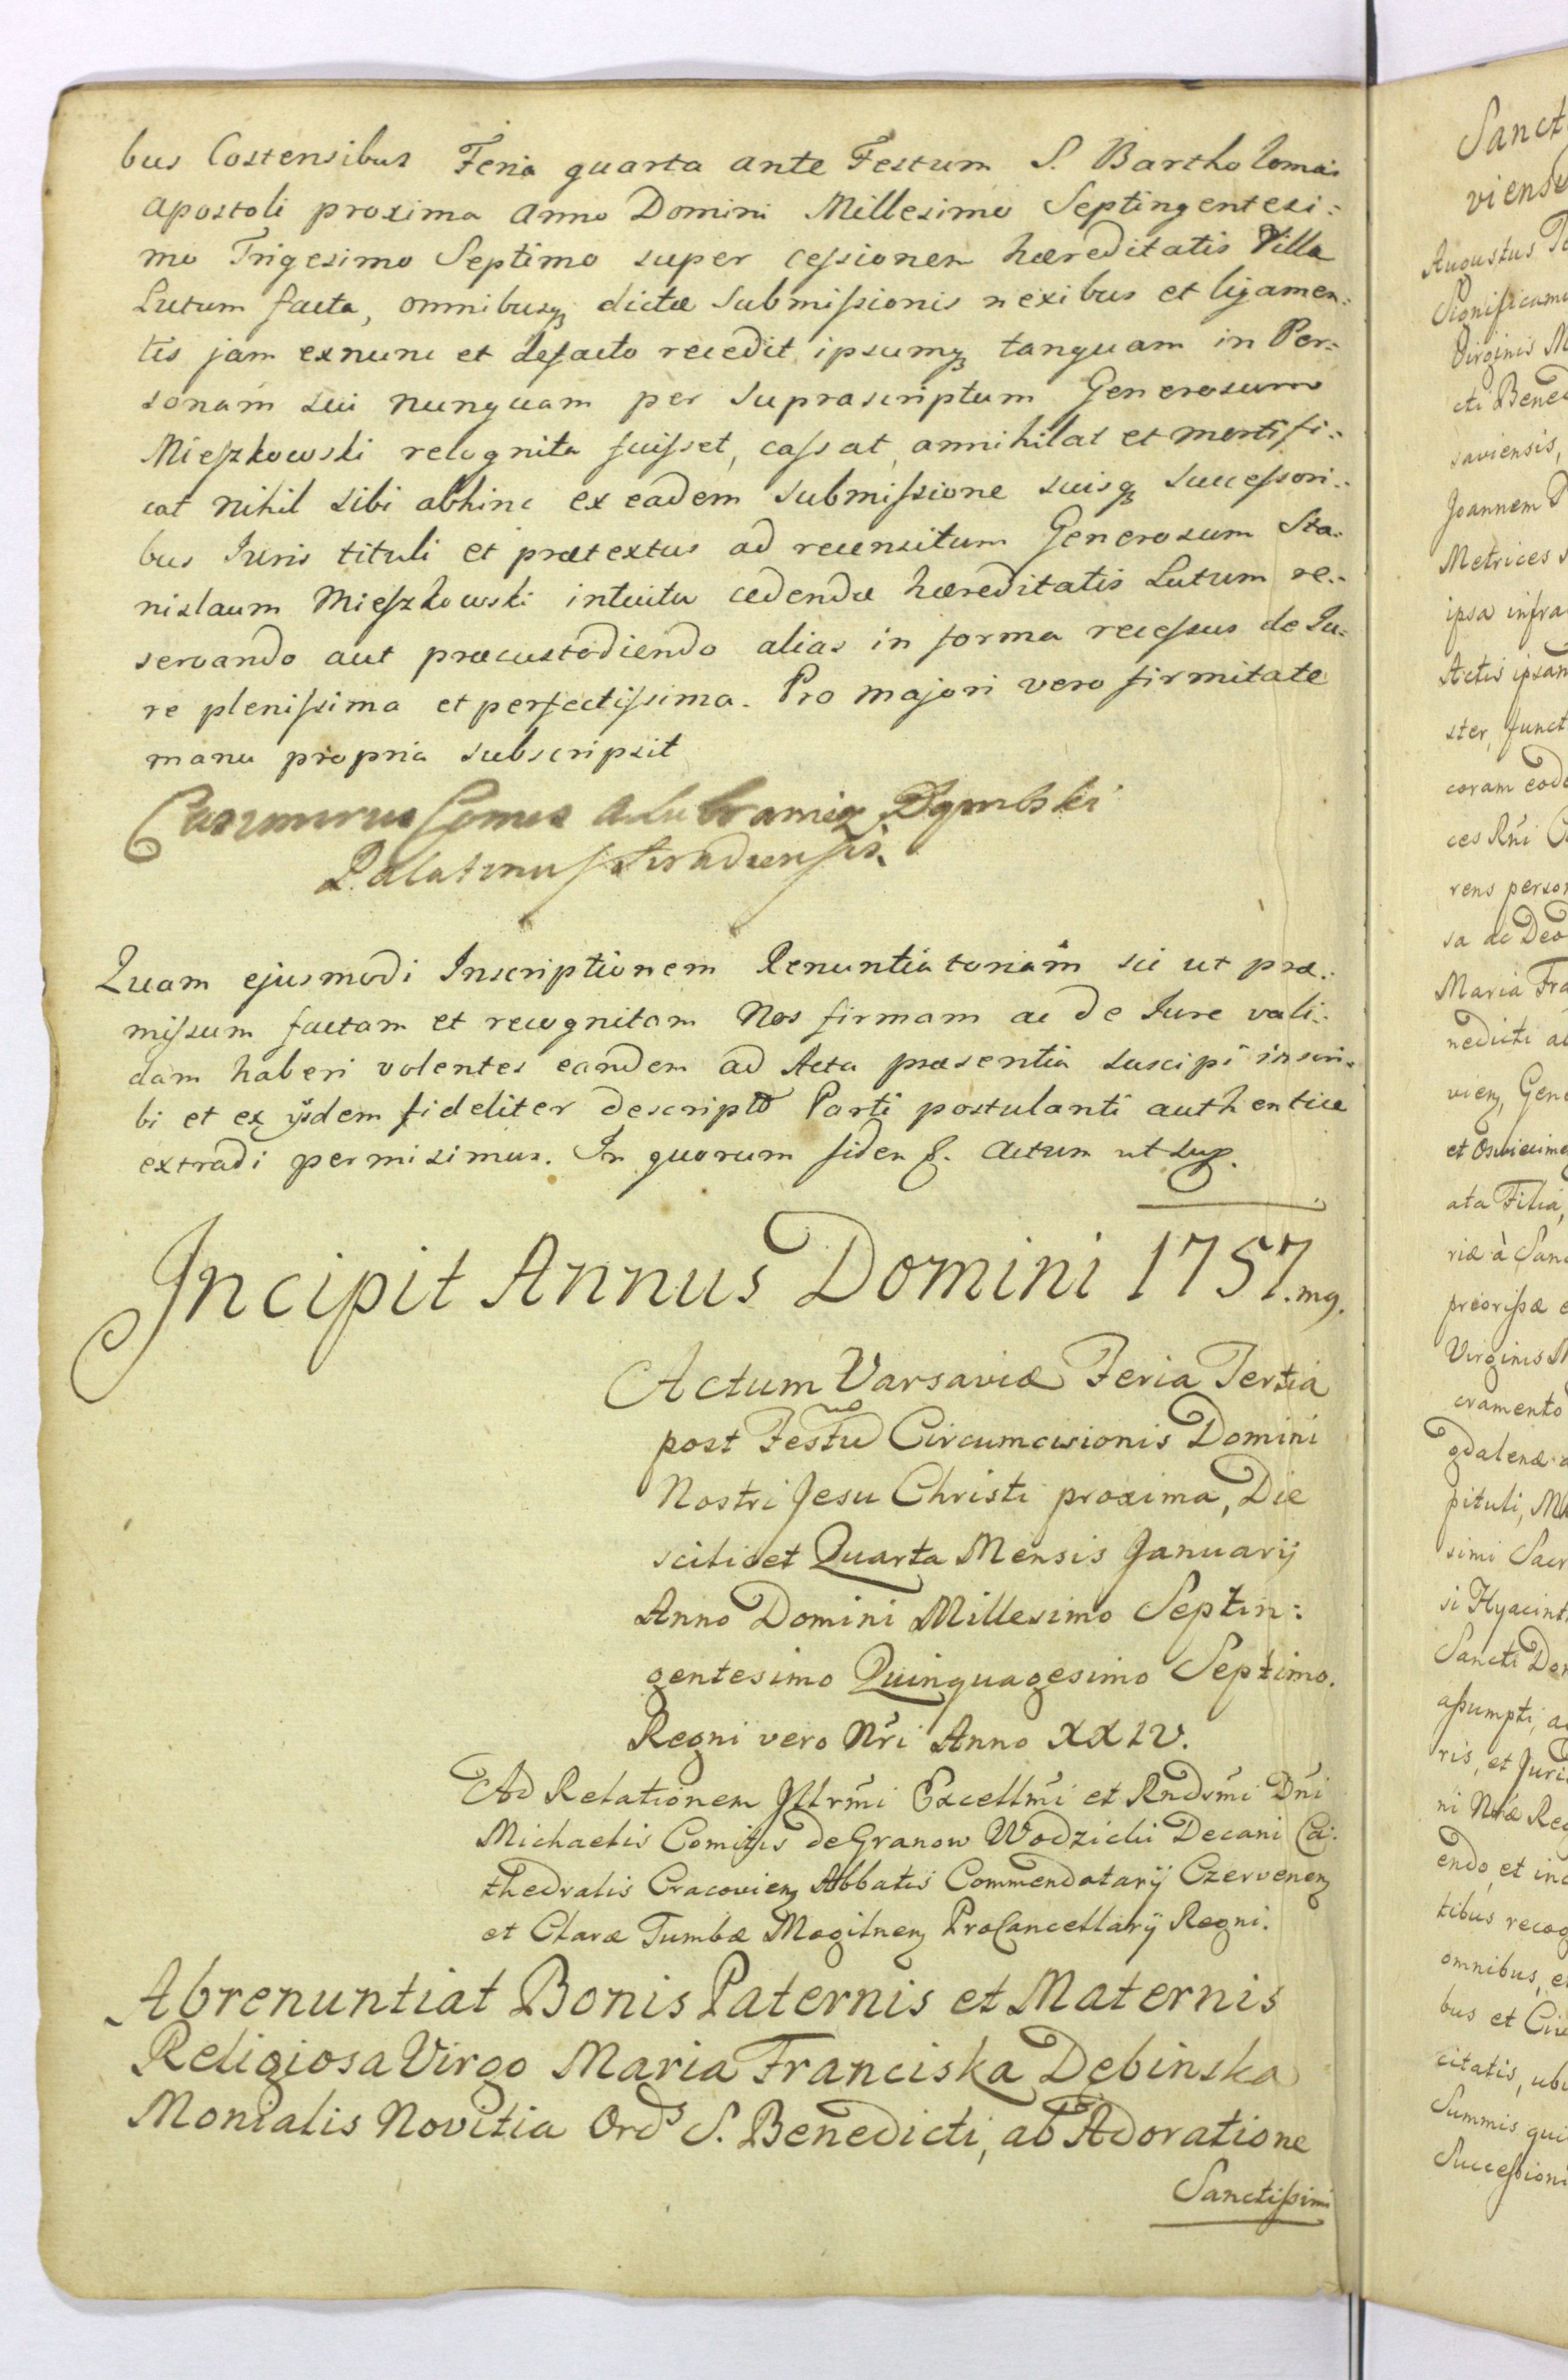 bus Costensibus Feria quarta ante Festum S. Bartholomæi
Apostoli proxima Anno Domini Millesimo Septingentesi:
mo Trigesimo Septimo super cessionem hæreditatis Villæ
Lutum facta, omnibusq dictæ Submissionis nexibus et ligamen:
tis jam exnunc et defacto recedit, ipsumq tanquam in Per:
sonam sui nunquam per supra scriptum Generosum
Mieszkowski recognita fuisset, cassat, annihilat et mortifi:
cat nihil sibi abhinc ex eadem submissione suisq successori:
bus Juris tituli et prætextus ad recensitum Generosum Sta:
nislaum Mieszkowski intuitu cedendæ hæreditatis Lutum re:
servando aut præcustodiendo alias in forma recessus de Ju:
re plenissima et perfectissima. Pro majori vero firmitate
manu propria subscripsit
Casimirus Comes a Lubraniec Dąmbski
Palatinus Siradiensis.
Quam ejusmodi Inscriptionem Renuntiatoriam sic ut præ:
missum factam et recognitam Nos firmam ac de Jure vali:
dam haberi volentes eandem ad Acta præsentia suscipi inscri:
bi et ex ijsdem fideliter descripto Parti postulanti authentice
extradi permisimus. In quorum fidem &. Actum ut sup.
Incipit Annus Domini 1757.mg.
Actum Varsaviæ Feria Tertia
post Festū Circumcisionis Domini
Nostri Jesu Christi proxima, Die
scilicet Quarta Mensis Januarij
Anno Domini Millesimo Septin:
gentesimo Quinquagesimo Septimo.
Regni vero Nri Anno XXIV.
Ad Relationem Illrmi Excellmi et Rndsmi Dni
Michaelis Comitis de Granow Wodzicki Decani Ca:
thedralis Cracovien Abbatis Commendatarij Czervenen
et Claræ Tumbæ Mogilnen ProCancellarij Regni.
Abrenuntiat Bonis Paternis et Maternis
Religiosa Virgo Maria Franciska Dębinska
Monialis Novitia Ords S. Benedicti, ab Adoratione
Sanctissimi
Sanct
viens
Augustus
Significamu
Virginis M
cti Bened
saviensis,
Joannem D
Metrices s
ipsa infra
Actis ipsam
ster, funct
coram eod
ces Rni C
rens person
sa ac Deo
Maria Fra
nedicti ab
vien, Gen
et Oswiecime
ata Filia,
riæ à Sanc
priorissæ e
Virginis M
cramento
gdalenæ a
pituli, Ma
simi Sacr
si Hyacint
Sancti Dom
assumpti, a
ris, et Juri
ni Nræ Reg
endo, et inc
tibus recog
omnibus, e
bus et Civ
citatis, ub
Summis qui
Successioni